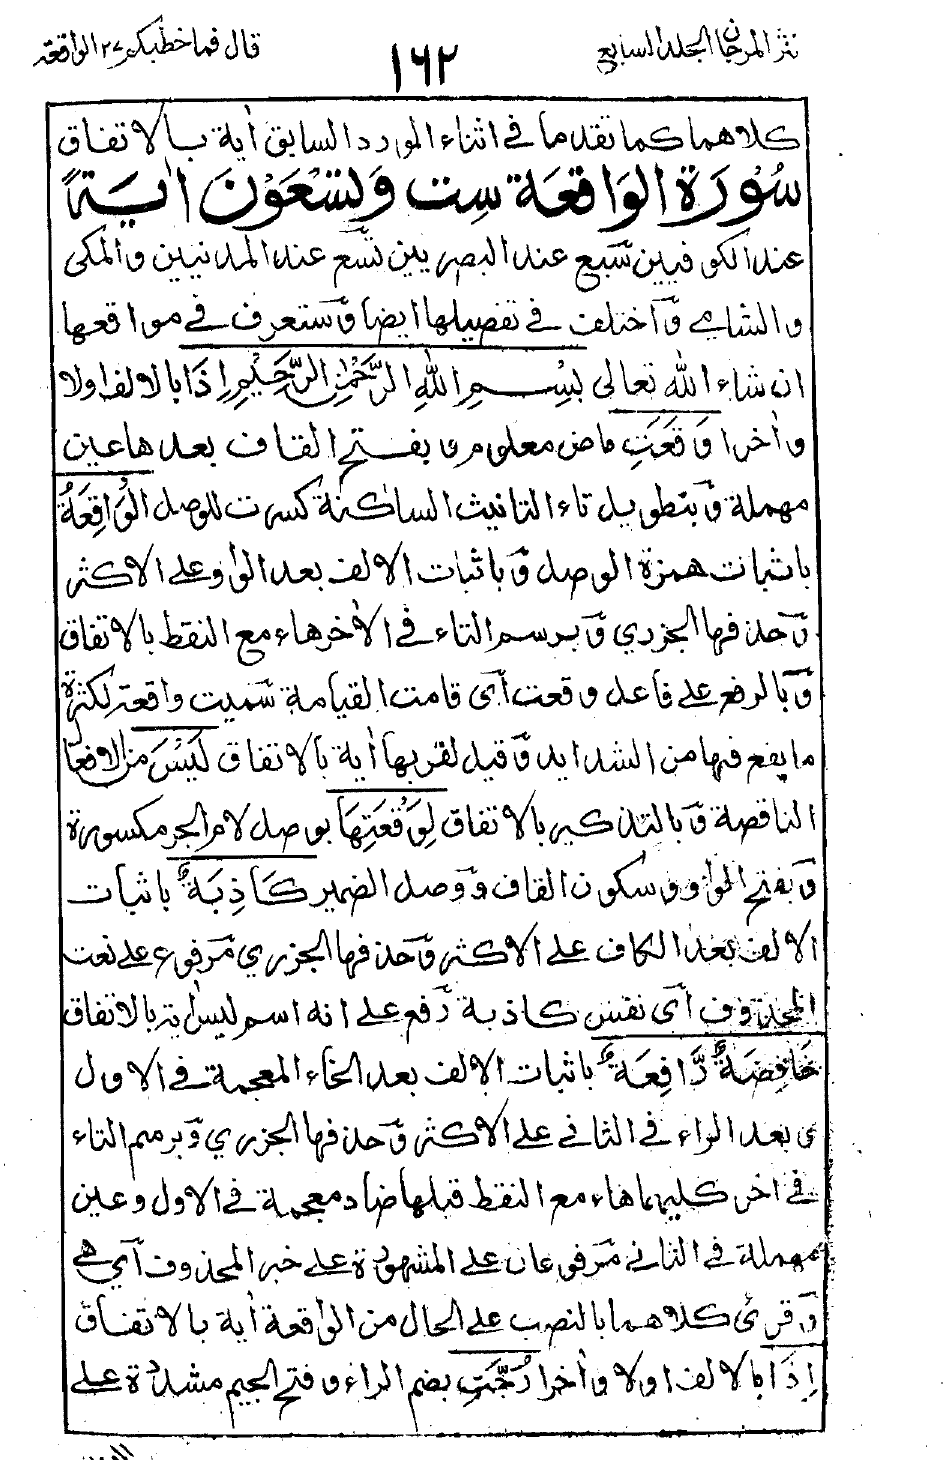 نثر المرجان الجلد السابع
١٦٢
قال فما خطبكم ٢٧ الواقعة
كلاهما كما تقدما في اثناء المورد السابق اٰية بالاتفاق
سُوْرَةُ الوَاقِعَة سِت وَتِسْعُوْنَ اٰيَةً
عند الكوفيين وسَبع عند البصريين وتسَع عند المدنيين والمكى
والشامي وآختلف في تفصيلها ايضا وستعرف في مواقعها
ان شاء الله تعالى بِسْمِ اللهِ الرَّحْمٰنِ الرَّحِيْمِ اِذَا بالالف اولا
واٰخرا وَقَعَتِ ماض معلوم وبفتح القاف بعدها عين
مهملة وبتطويل تاء التانيث الساكنة كسرت للوصل الْوَاقِعَةُ
باثبات همزة الوصل وباثبات الالف بعد الواو على الاكثر
وحذفها الجزري وبرسم التاء في الاٰخر هاء مع النقط بالاتفاق
وبالرفع على فاعل وقعت اَى قامت القيامة سَميت واقعة لكثرة
ما يقع فيها من الشدايد وقيل لقربها اٰية بالاتفاق لَيْسَ من الافعال
الناقصة وبالتذكير بالاتفاق لِوَقْعَتِهَا بوصل لام الجر مكسورة
وبفتح الواو وسكون القاف ووصل الضمير كَاذِبَةٌ باثبات
الالف بعد الكاف على الاكثر وحذفها الجزري مرفوع على نعت
المحذوف اَى نفس كاذبة رفع على انه اسم ليس اٰية بالاتفاق
خَافِضَةٌ رَّافِعَةٌ باثبات الالف بعد الخاء المعجمة في الاول
وبعد الراء في الثاني على الاكثر وحذفها الجزري وبرسم التاء
في اٰخر كليهما هاء مع النقط قبلها ضاد معجمة في الاول وعين
مهملة في الثاني مرفوعان على المشهورة على خبر المحذوف اَي هي
وقرئ كلاهما بالنصب على الحال من الواقعة اٰية بالاتفاق
اِذَا بالالف اولا واٰخرا رُجَّتِ بضم الراء وفتح الجيم مشددة على